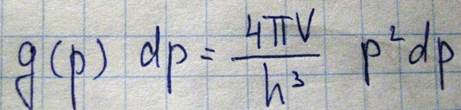 g(p) dp = \frac{4πV}{h³} p² dp